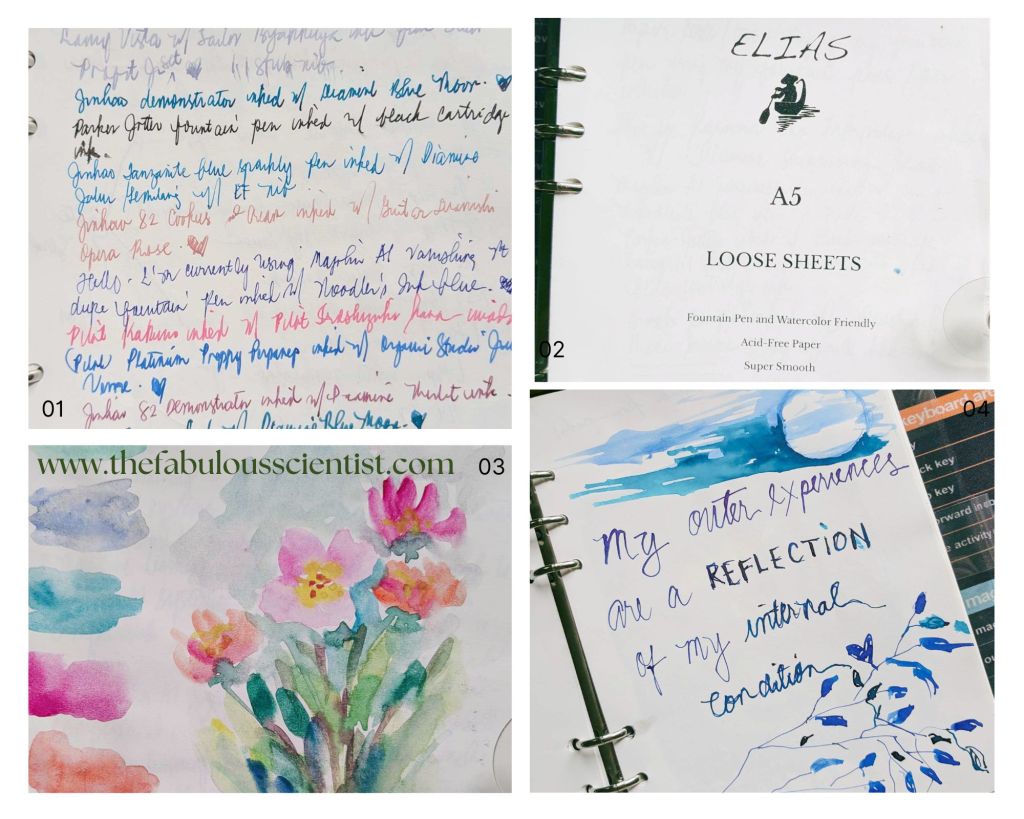 Lamy Vista w/ Sailor ink from
11 Stub nib.
Jinhao demonstrator inked w/ Diamine Blue Moon.
Parker Jotter fountain pen inked w/ black cartridge
ink.
Jinhao Tanzanite blue sparkly pen inked w/ Diamine
Jalur Gemilang w/ EF nib
Jinhao 82 Cookies & Cream inked w/
Opera Rose.
Hello. I'm currently using Majohn A1 Vanishing Pt
dupe fountain pen inked w/ Noodler's Ink blue.
Pilot Kakuno inked w/ Pilot Iroshizuku
Platinum Preppy inked w/ Organic Studio
Jinhao 82 Demonstrator inked w/ Diamine
w/ Diamine Blue Moon.
01
ELIAS
A5
LOOSE SHEETS
Fountain Pen and Watercolor Friendly
Acid-Free Paper
Super Smooth
02
www.thefabulousscientist.com
03
My outer experiences
are a REFLECTION
of my internal
condition
04
keyboard
key
key